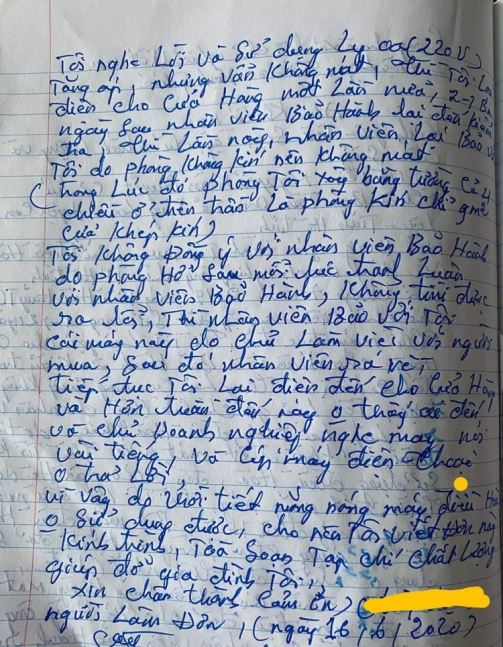 Tôi nghe Lời và Sử dụng Ly oa (220V)
Tăng áp, nhưng vẫn không mát, thì Tôi
điện cho Cửa Hàng một Lần nữa, 2-7
ngày Sau nhân viên Bảo Hành lại đến kiểm
tra, thì Lần này, nhân viên Lại Bảo
Tôi do phòng không kín nên không mát
(trong Lúc đó phòng Tôi xây bằng tường
ở trên trần Là phòng kín chỉ
cửa khép kín)
Tôi không Đồng ý với nhân viên Bảo Hành
do phòng Hở Sau một lúc tranh Luận
với nhân viên Bảo Hành, không tìm được
ra lỗi, Thì nhân viên Bảo với Tôi
cái máy này do chủ Làm việc với người
mua, Sau đó nhân viên ra về,
tiếp tục Tôi Lại điện đến cho Cửa Hàng
và Hơn tuần đến này o thấy ai đến
vợ chủ Doanh nghiệp nghe máy nói
vài tiếng, và Cúp máy điện thoại
o trả Lời,
vì vậy do thời tiết nắng nóng máy điều
o Sử dụng được, cho nên Tôi viết Đơn này
kính trình, Tòa Soạn Tạp chí Chất Lượng
giúp đỡ gia đình Tôi,
xin chân thành Cảm ơn,
người Làm Đơn, (ngày 16, 6, 2020)